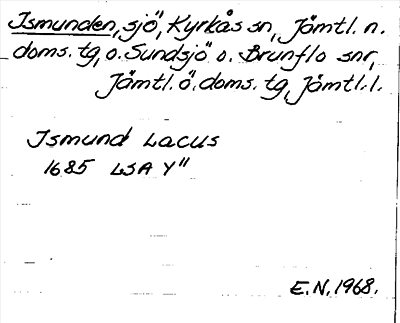 Ismunden, sjö, Kyrkås sn, Jämtl. n.
doms. tg, o. Sundsjö o. Brunflo snr,
Jämtl. ö. doms. tg, Jämtl. l.
Ismund Lacus
1685 LSA Y"
E.N. 1968.